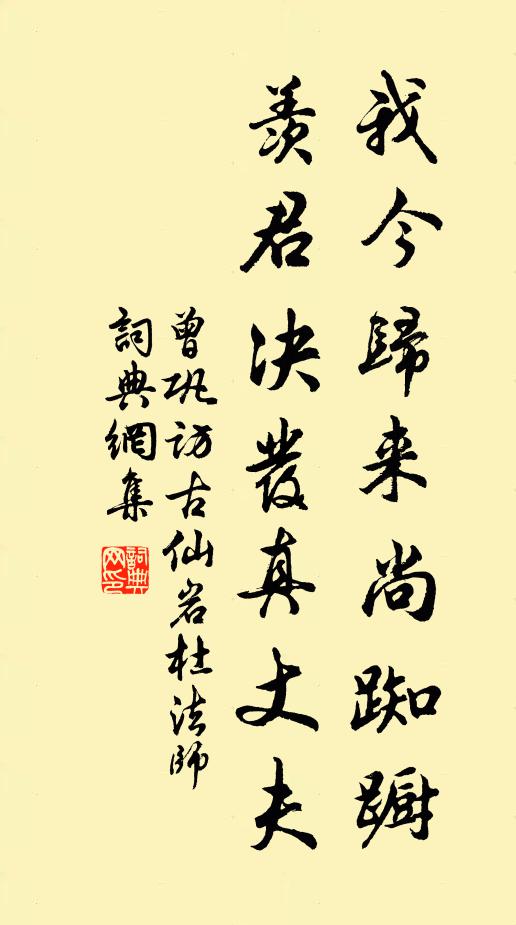 我今歸来尚踟蹰
羨君決發真丈夫
曾巩訪古仙岩杜法師
詞典網集
詞典网印